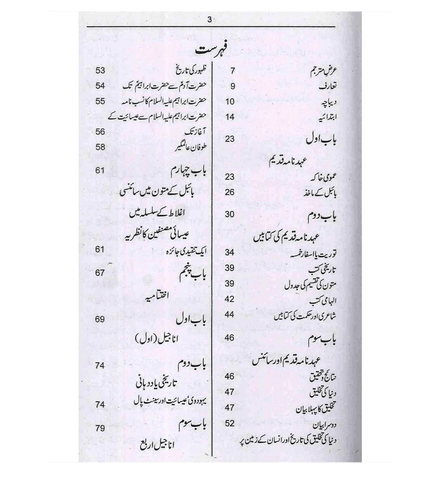 3
فہرست
عرض مترجم 7
تعارف 9
دیباچہ 10
ابتدائیہ 14
باب اول 23
عہد نامہ قدیم
عمومی خاکہ 23
بائبل کے ماخذ 26
باب دوم 30
عہد نامہ قدیم کی کتابیں
توریت یا اسفار خمسہ 34
تاریخی کتب 39
متون کی تقسیم کی جدول 39
الہامی کتب 42
شاعری اور حکمت کی کتابیں 44
باب سوم 46
عہد نامہ قدیم اور سائنس
نتائج تحقیق 46
دنیا کی تخلیق 47
تخلیق کا پہلا بیان 47
دوسرا بیان 52
دنیا کی تخلیق کی تاریخ اور انسان کے زمین پر
ظہور کی تاریخ 53
حضرت آدمؑ سے حضرت ابراہیمؑ تک 54
حضرت ابراہیم علیہ السلام کا نسب نامہ 55
حضرت ابراہیم علیہ السلام سے عیسائیت کے
آغاز تک 56
طوفان عالمگیر 58
باب چہارم 61
بائبل کے متون میں سائنسی
اغلاط کے سلسلہ میں
عیسائی مصنفین کا نظریہ
ایک تنقیدی جائزہ 61
باب پنجم 67
اختتامیہ
باب اول 69
اناجیل (اول)
باب دوم 74
تاریخی یاددہانی
یہودی عیسائیت اور سینٹ پال 74
باب سوم 79
اناجیل اربع